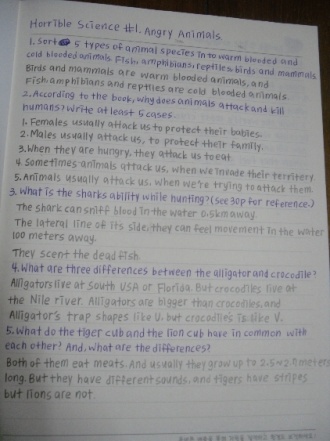 Horrible Science #1. Angry Animals
1. Sort 5 types of animal species in to warm blooded and
cold blooded animals. Fish, amphibians, reptiles, birds and mammals
Birds and mammals are warm blooded animals, and
Fish amphibians and reptiles are cold blooded animals.
2. According to the book, why does animals attack and kill
humans? Write at least 5 cases.
1. Females usually attack us to protect their babies.
2. Males usually attack us, to protect their family.
3. When they are hungry, they attack us to eat
4. Sometimes animals attack us, when we invade their territery
5. Animals usually attack us, when we're trying to attack them.
3. What is the sharks ability while hunting? (See 30p for reference.)
The shark can sniff blood in the water 0.5km away.
The lateral line of its side, they can feel movement in the water
100 meters away.
They scent the dead fish.
4. What are three differences between the alligator and crocodile?
Alligators live at South USA or Florida. But crocodiles live at
the Nile river. Alligators are bigger than crocodiles, and
Alligator's trap shapes like U, but crocodiles is like V.
5. What do the tiger cub and the lion cub have in common with
each other? And, what are the differences?
Both of them eat meats. And usually they grow up to 2.5~2.9 meters
long. But they have different sounds, and tigers have stripes
but lions are not.